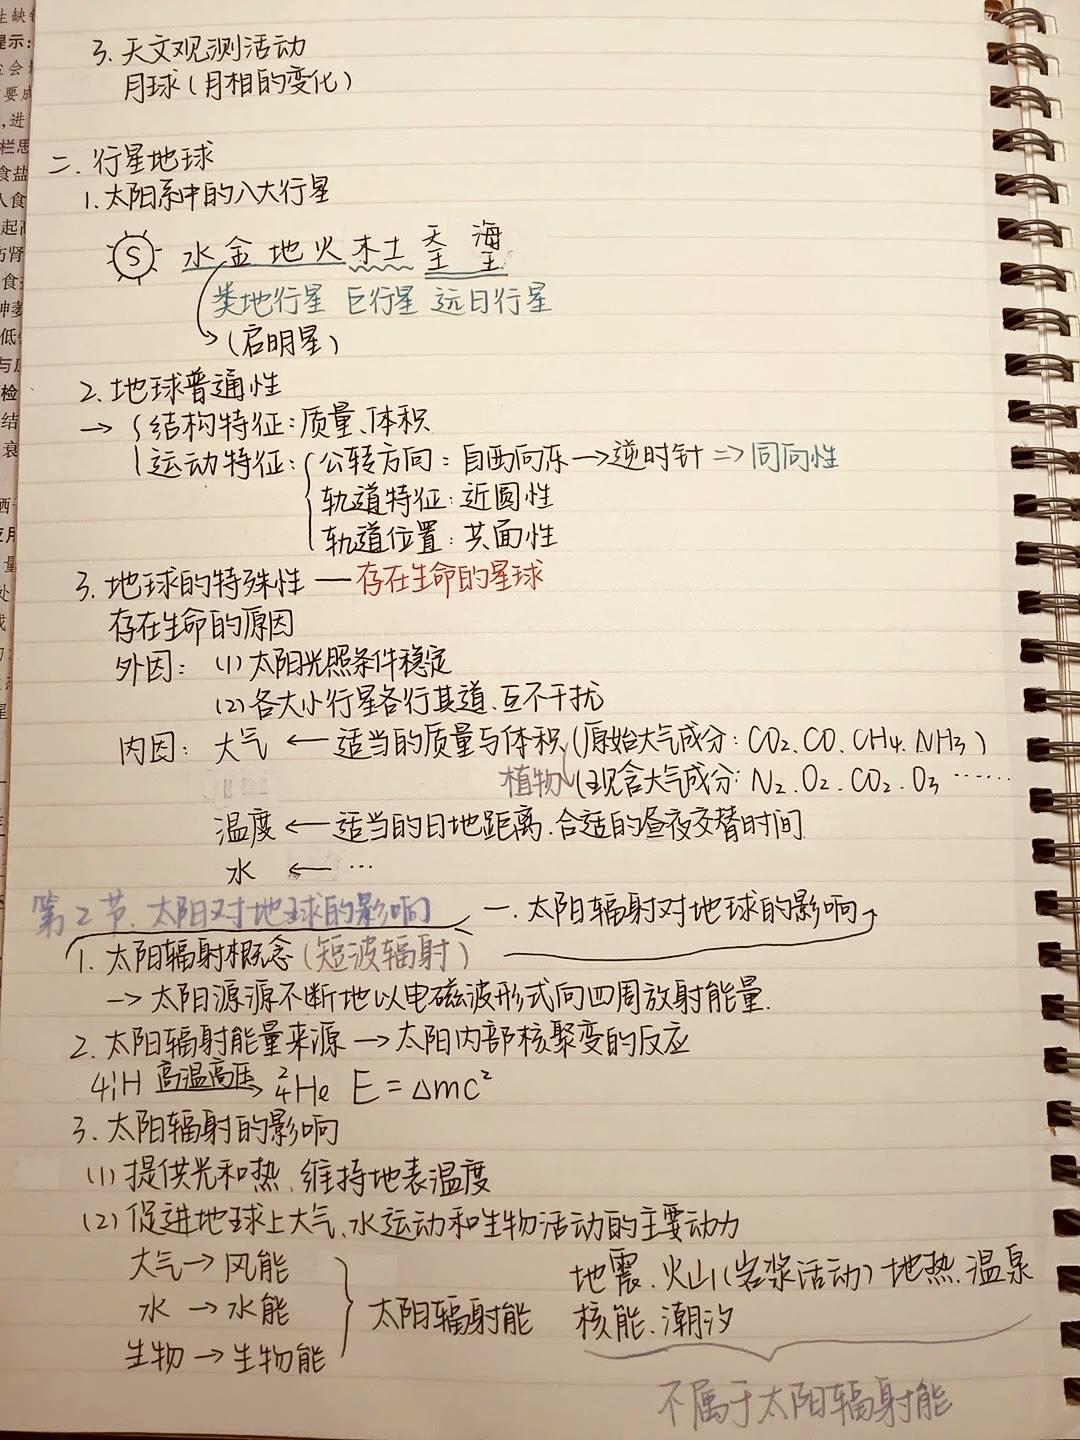 3. 天文观测活动
月球(月相的变化)
二. 行星地球
1. 太阳系中的八大行星
S 水 金 地 火 木 土 天王 海王
类地行星 巨行星 远日行星
(启明星)
2. 地球普通性
→ {结构特征: 质量、体积
运动特征: {公转方向: 自西向东→逆时针 => 同向性
轨道特征: 近圆性
轨道位置: 共面性
3. 地球的特殊性 — 存在生命的星球
存在生命的原因
外因: (1) 太阳光照条件稳定
(2) 各大小行星各行其道、互不干扰
内因: 大气 ← 适当的质量与体积 (原始大气成分: CO2、CO、CH4、NH3)
植物 (现含大气成分: N2、O2、CO2、O3 ……
温度 ← 适当的日地距离、合适的昼夜交替时间
水 ← …
第2节. 太阳对地球的影响 一. 太阳辐射对地球的影响
1. 太阳辐射概念 (短波辐射)
→ 太阳源源不断地以电磁波形式向四周放射能量.
2. 太阳辐射能量来源 → 太阳内部核聚变的反应
4¦H 高温高压→ ²₄He E=Δmc²
3. 太阳辐射的影响
(1) 提供光和热、维持地表温度
(2) 促进地球上大气、水运动和生物活动的主要动力
大气→风能
水 → 水能
生物 → 生物能
} 太阳辐射能
地震、火山(岩浆活动) 地热、温泉
核能、潮汐
不属于太阳辐射能